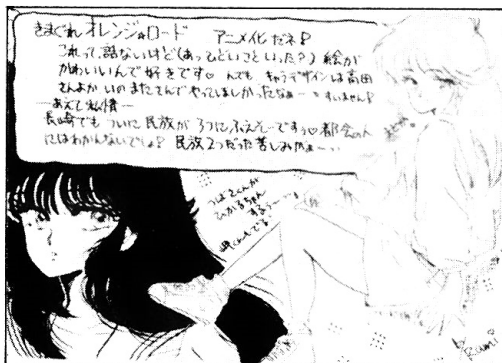 きまぐれオレンジ☆ロード アニメ化だネ!
これって、話ないけど(あってどいこといった?)絵が
かわいいんで好きです♡ んでも、キャラデザインは高田
さんよか いのまたさんでやってほしかったなぁー すいません!
―あえて私情―
長崎でもついに民放が3つにふえそーですぅ♡都会の人
にはわかんないでしょ! 民族2つだった苦しみがぁー…
つばさくんが
ひかるちゃん
するぅー…
岬くんもでる